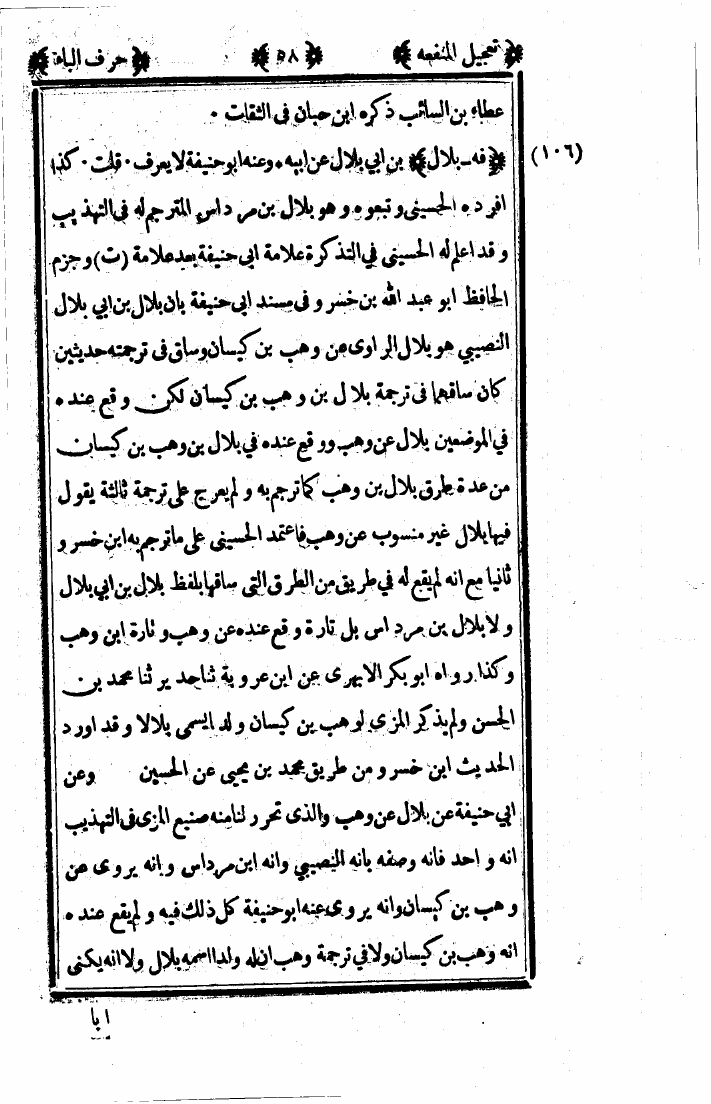 ﴿ تعجيل المنفعه ﴾ ﴿ ٥٨ ﴾ ﴿ حرف الباء ﴾
عطاء بن السائب ذكره ابن حبان فى الثقات ٠
(١٠٦) ﴿ فه ـ بلال ﴾ بن ابي بلال عن ابيه ٠ وعنه ابو حنيفة لا يعرف ٠ قلت ٠ كذا
افرده الحسينى و تبعوه و هو بلال بن مرداس المترجم له فى التهذيب
و قد اعلم له الحسينى في التذكرة علامة ابى حنيفة بعد علامة (ت) و جزم
الحافظ ابو عبد الله بن خسرو فى مسند ابى حنيفة بان بلال بن ابي بلال
النصيبي هو بلال الراوى عن وهب بن كيسان وساق فى ترجمته حديثين
كان ساقهما فى ترجمة بلال بن وهب بن كيسان لكن وقع عنده
في الموضعين بلال عن وهب ووقع عنده في بلال بن وهب بن كيسان
من عدة طرق بلال بن وهب كما ترجم به و لم يعرج على ترجمة ثالثة يقول
فيها بلال غير منسوب عن وهب فاعتمد الحسينى على ما ترجم به ابن خسرو
ثانيا مع انه لم يقع له في طريق من الطرق التى ساقها بلفظ بلال بن ابي بلال
و لا بلال بن مرداس بل تارة وقع عنده عن وهب و تارة ابن وهب
وكذا رواه ابو بكر الابهرى عن ابن عروبة ثنا جدير ثنا محمد بن
الحسن ولم يذكر المزي لوهب بن كيسان ولدا يسمى بلالا وقد اورد
الحديث ابن خسرو من طريق محمد بن يحيى عن الحسين وعن
ابي حنيفة عن بلال عن وهب والذى تحرر لنا منه صنيع المزى فى التهذيب
انه واحد فانه وصفه بانه النصيبي وانه ابن مرداس وانه يروى عن
وهب بن كيسان وانه يروى عنه ابو حنيفة كل ذلك فيه و لم يقع عنده
انه وهب بن كيسان ولا في ترجمة وهب ان له ولدا اسمه بلال ولا انه يكنى
ابا